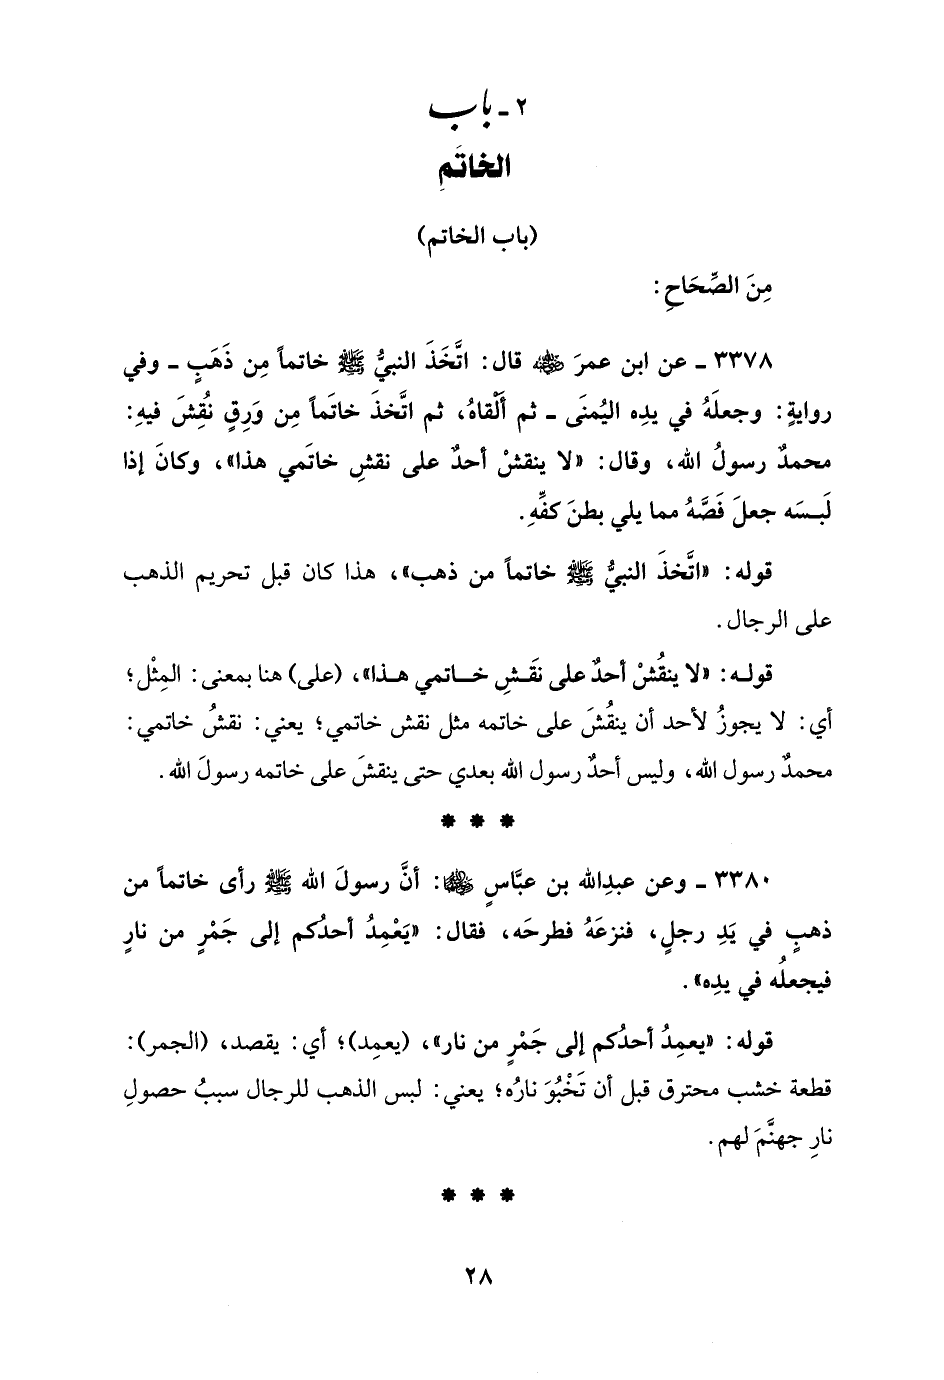 ٢ ـ باب
الخاتَمِ
(باب الخاتم)
مِنَ الصِّحَاحِ:
٣٣٧٨ ـ عن ابن عمرَ ﵁ قال: اتَّخَذَ النبيُّ ﷺ خاتماً مِن ذَهَبٍ ـ وفي
روايةٍ: وجعلَهُ في يدِه اليُمنَى ـ ثم أَلْقاهُ، ثم اتَّخذَ خاتَماً مِن وَرِقٍ نُقِشَ فيهِ:
محمدٌ رسولُ الله، وقال: «لا ينقشْ أحدٌ على نقشِ خاتَمي هذا»، وكانَ إذا
لَبِسَه جعلَ فَصَّهُ مما يلي بطنَ كفِّهِ.
قوله: «اتَّخذَ النبيُّ ﷺ خاتماً من ذهب»، هذا كان قبل تحريم الذهب
على الرجال.
قوله: «لا ينقُشْ أحدٌ على نقَشِ خاتمي هذا»، (على) هنا بمعنى: المِثْل؛
أي: لا يجوزُ لأحد أن ينقُشَ على خاتمه مثل نقش خاتمي؛ يعني: نقشُ خاتمي:
محمدٌ رسول الله، وليس أحدٌ رسول الله بعدي حتى ينقشَ على خاتمه رسولَ الله.
* * *
٣٣٨٠ ـ وعن عبدِالله بن عبَّاسٍ ﵄: أنَّ رسولَ الله ﷺ رأى خاتماً من
ذهبٍ في يَدِ رجلٍ، فنزعَهُ فطرحَه، فقال: «يَعْمِدُ أحدُكم إلى جَمْرٍ من نارٍ
فيجعلُه في يدِه».
قوله: «يعمِدُ أحدُكم إلى جَمْرٍ من نار»، (يعمِد)؛ أي: يقصد، (الجمر):
قطعة خشب محترق قبل أن تَخْبُوَ نارُه؛ يعني: لبس الذهب للرجال سببُ حصولِ
نارِ جهنَّمَ لهم.
* * *
٢٨